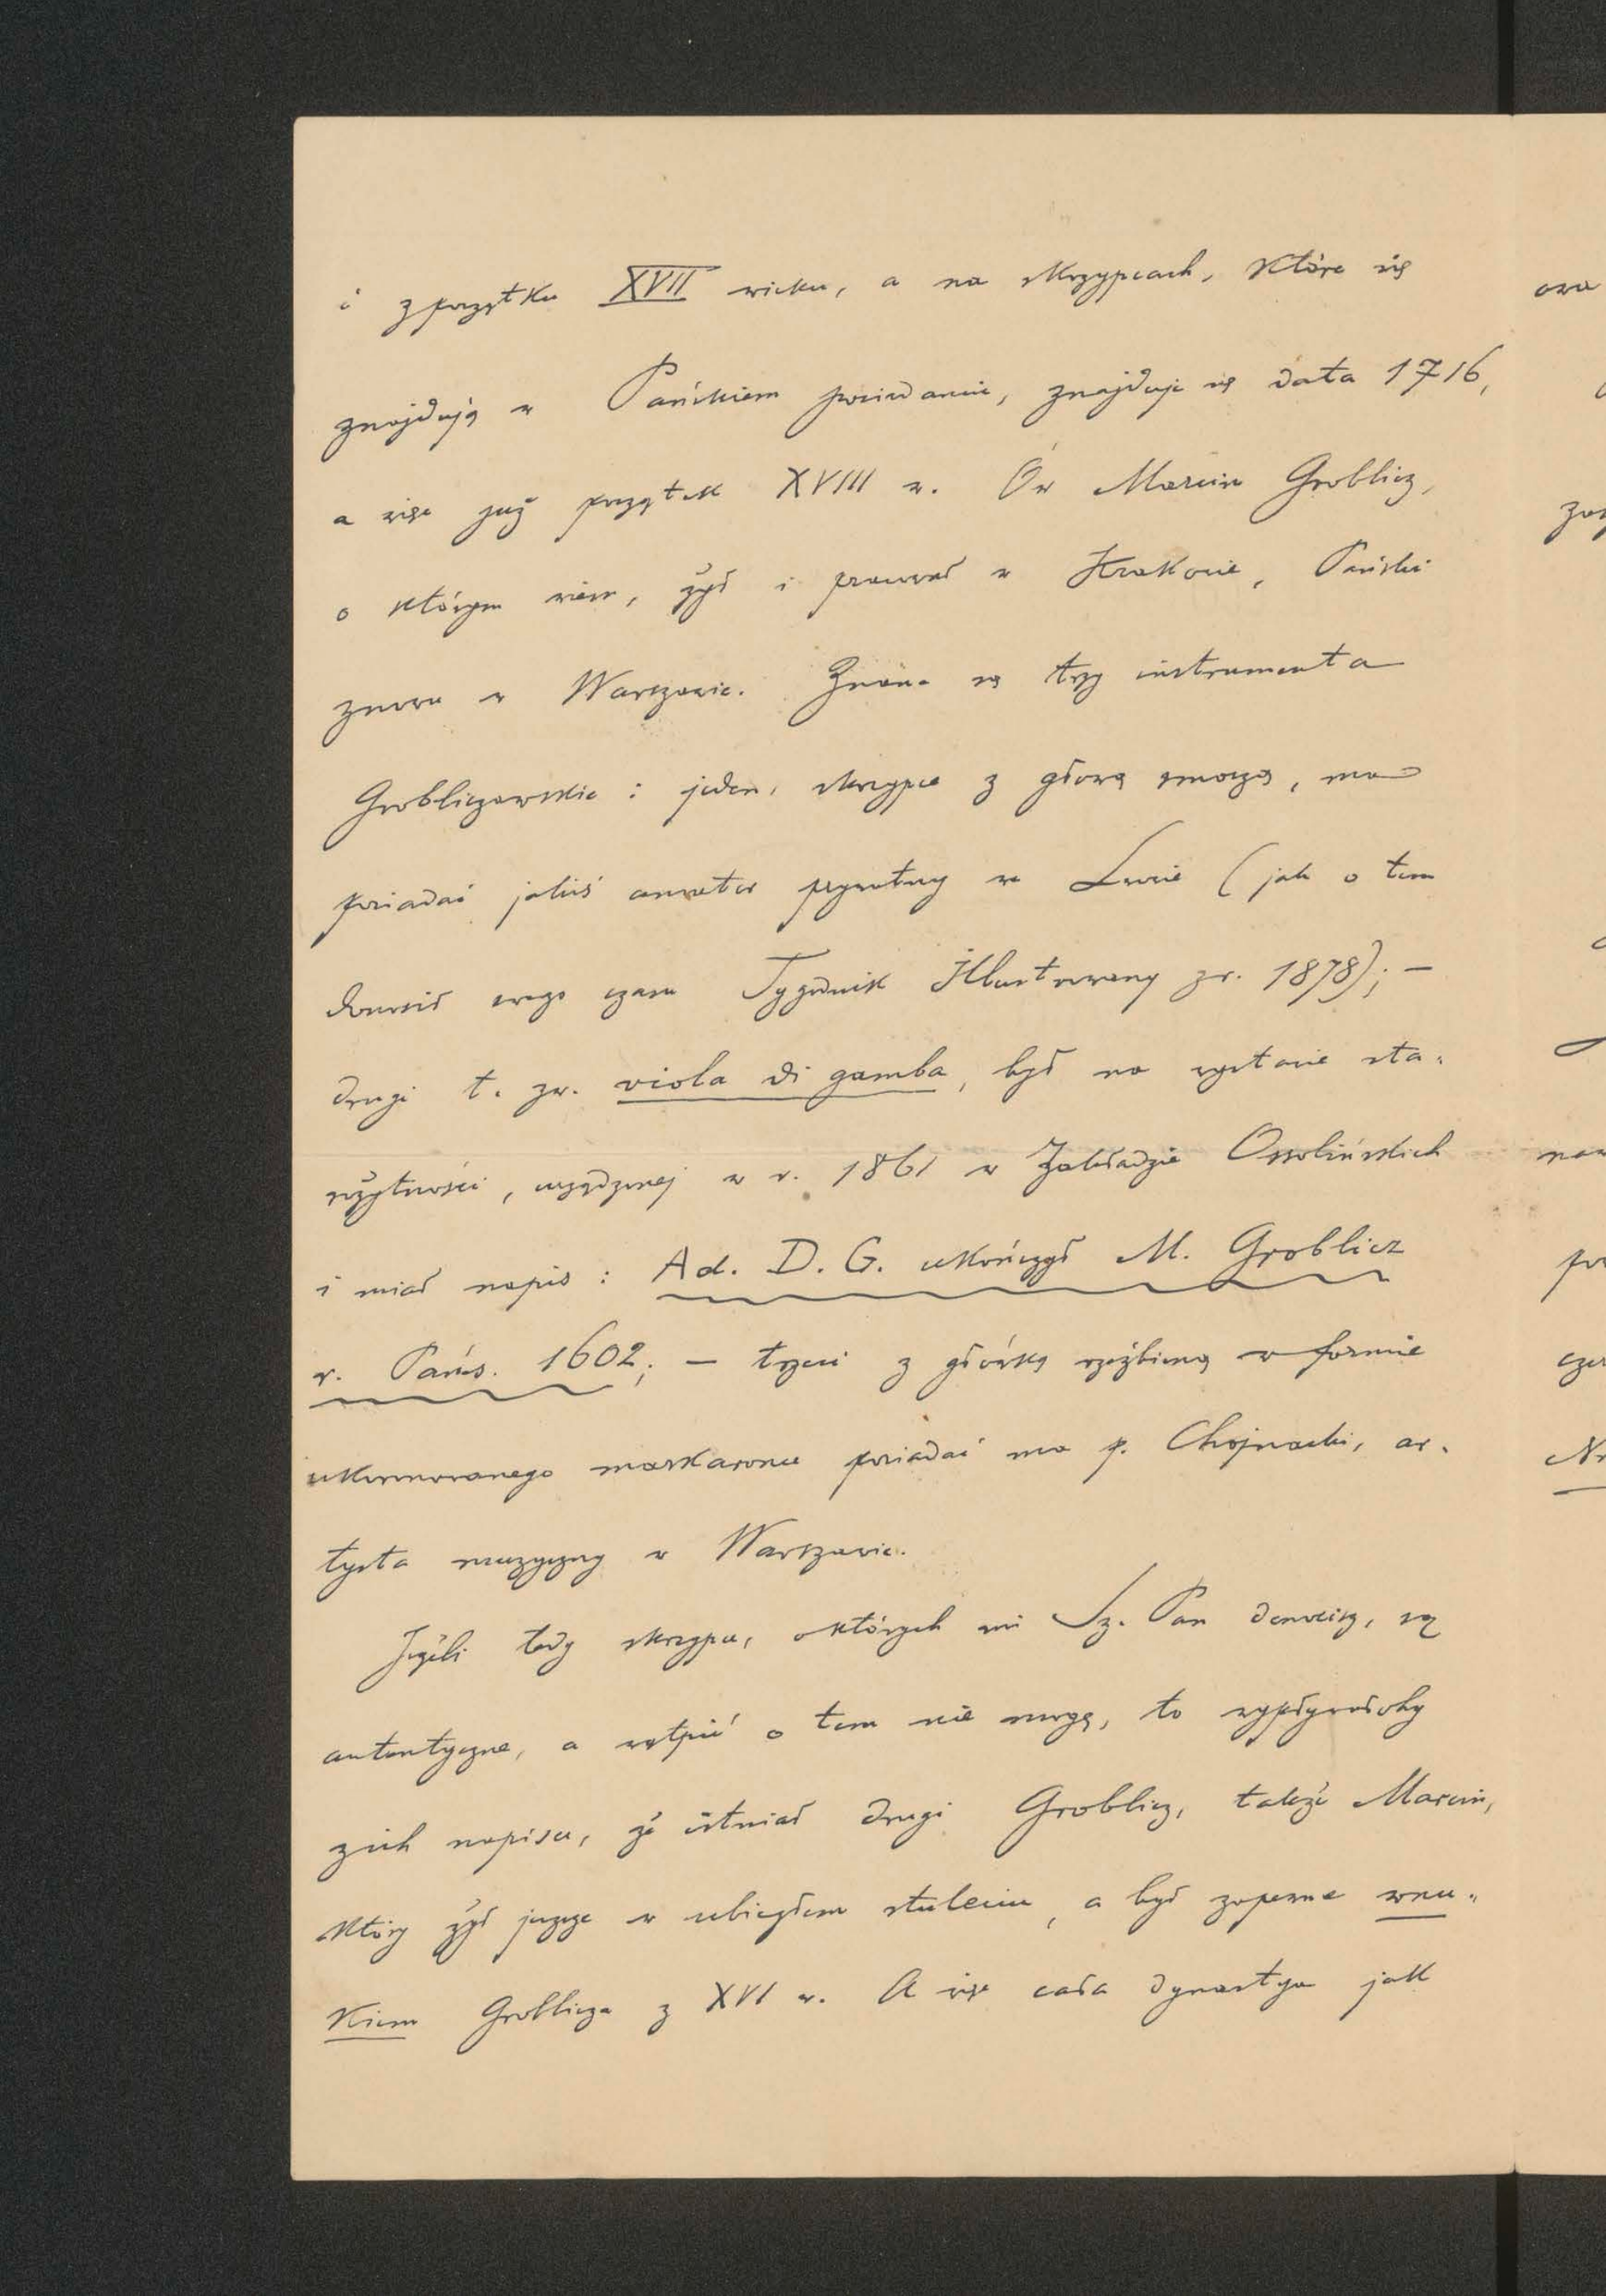 i z początku XVII wieku, a na skrzypcach, które się
znajdują w Pańskiem posiadaniu, znajduje się data 1716,
a więc już początek XVIII w. Ów Marcin Groblicz,
o którym wiem, żył i pracował w Krakowie, Pański
znowu w Warszawie. Znane są trzy instrumenta
Grobliczowskie : jeden, skrzypce z głową smoczą, ma
posiadać jakiś amator prywatny we Lwowie (jak o tem
donosił swego czasu Tygodnik Illustrowany z r. 1878); –
drugi t. zw. viola di gamba, był na wystawie sta-
rożytności, urządzonej w r. 1861 w Zakładzie Ossolińskich
i miał napis : Ad. D. G. ukończył M. Groblicz
r. Pańs. 1602; – trzeci z główką rzeźbioną w formie
ukoronowanego maskarona posiadać ma p. Chojnacki, ar-
tysta muzyczny w Warszawie.
Jeżeli tedy skrzypce, o których mi Sz. Pan donosisz, są
autentyczne, a wątpić o tem nie mogę, to wypływałoby
z ich napisu, że istniał drugi Groblicz, także Marcin,
który żył jeszcze w ubiegłem stuleciu, a był zapewne wnu-
kiem Groblicza z XVI w. A więc cała dynastya jak
ora
Nr